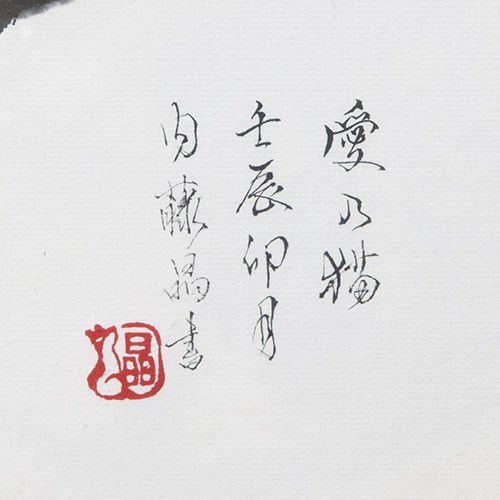 愛乃猫
壬辰卯月
内藤晶書
晶